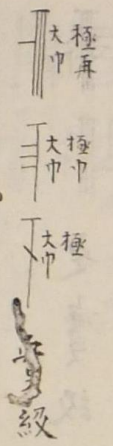 極再
大巾
極巾
大巾
極
大巾
級